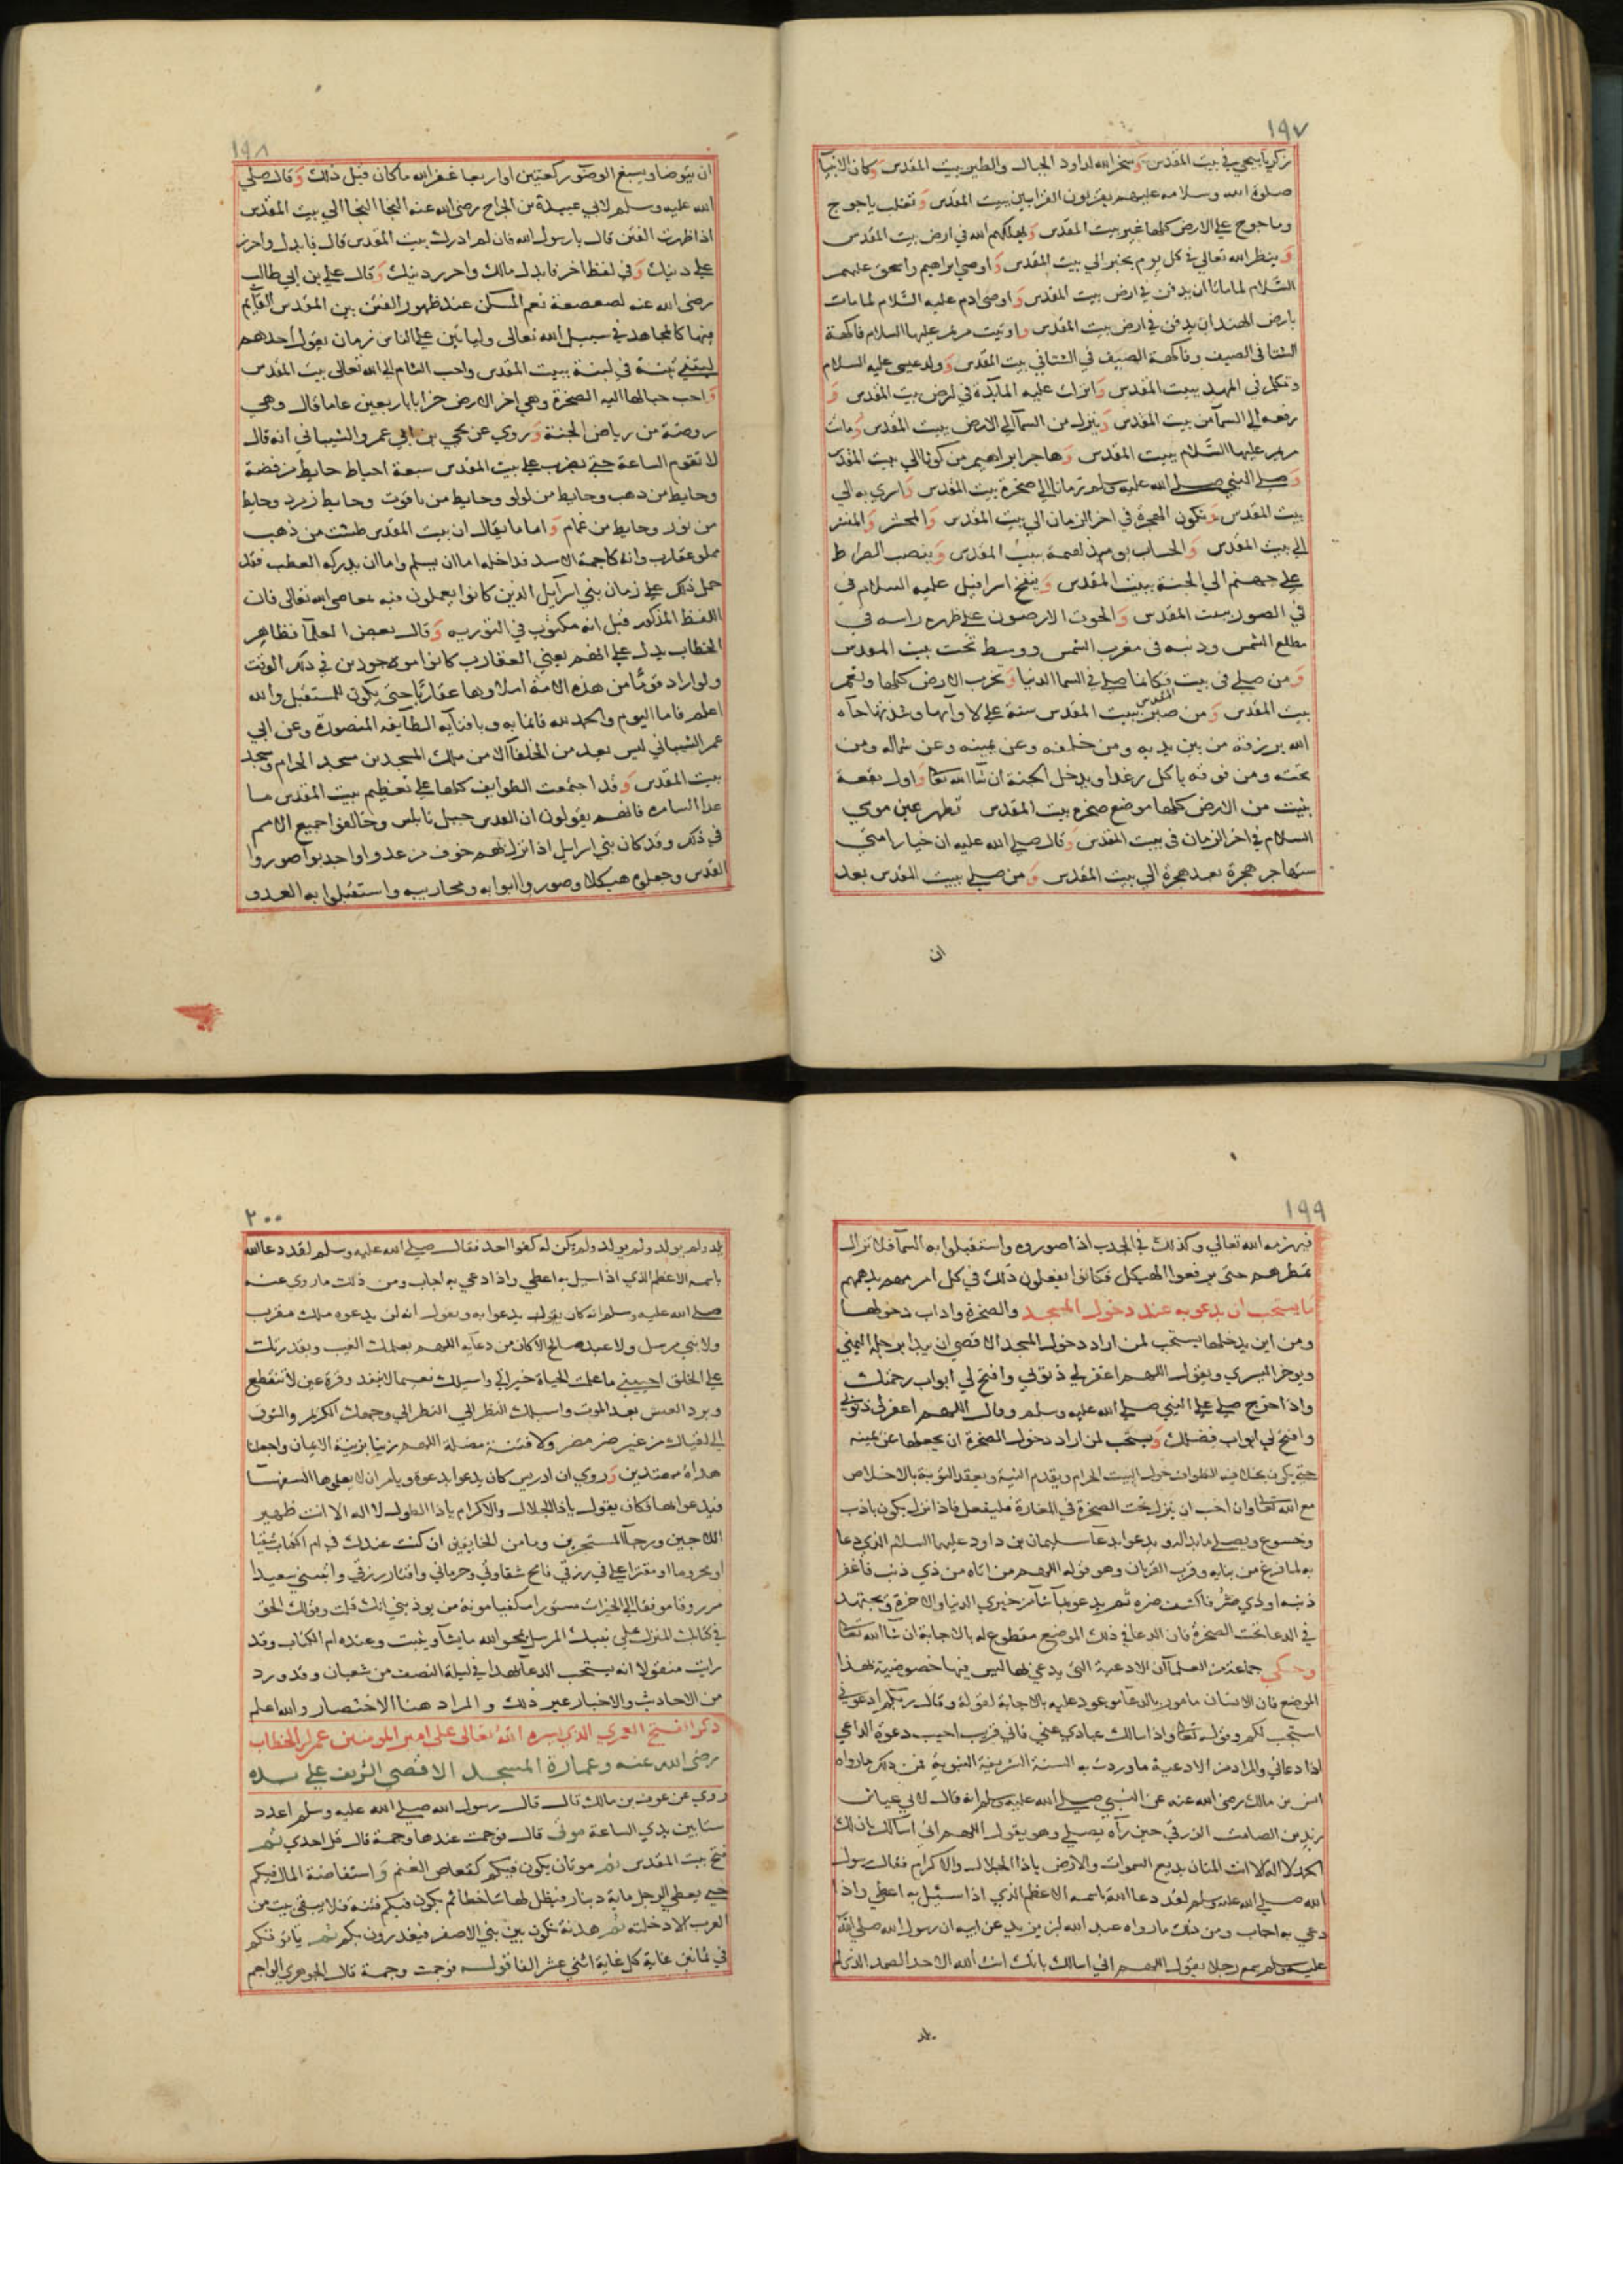 ١٩٧
زكريا بيحيى في بيت المقدس وسخر الله لداود الجبال والطير ببيت المقدس وكان الانبيآ
صلوة الله وسلامه عليهم يقربون القرابين ببيت المقدس وتغلب ياجوج
وماجوج علي الارض كلها غير بيت المقدس ويهلكهم الله في ارض بيت المقدس
وينظر الله تعالي في كل يوم بخير الي بيت المقدس واوصي ابراهيم واسحق عليهما
السّلام لما ماتا ان يدفنا في ارض بيت المقدس واوصي ادم عليه السّلام لما مات
بارض الهند ان يدفن في ارض بيت المقدس واوتيت مريم عليها السلام فاكهة
الشتا في الصيف وفاكهة الصيف في الشتا في بيت المقدس وولد عيسي عليه السلام
وتكلم في المهد ببيت المقدس وانزلت عليه المآيدة في ارض بيت المقدس و
رفعه الي السمآ من بيت المقدس وينزل من السمآ الي الارض ببيت المقدس وماتت
مريم عليها السّلام ببيت المقدس وهاجر ابراهيم من كوثا الي بيت المقدس
وصلي النبي صلي الله عليه وسلم زمانا الي صخرة بيت المقدس واسري به الي
بيت المقدس وتكون الهجرة في اخر الزمان الي بيت المقدس والمحشر والمنشر
الي بيت المقدس والحساب يوم القيمة ببيت المقدس وينصب الصراط
علي جهنم الي الجنة ببيت المقدس وينفخ اسرافيل عليه السلام في
في الصور ببيت المقدس والحوت الارضون علي ظهره راسه في
مطلع الشمس وذنبه في مغرب الشمس ووسطه تحت بيت المقدس
ومن صلي في بيت المقدس فكانما صلي في السما الدنيا وتخرب الارض كلها ويعمر
بيت المقدس ومن صبر ببيت المقدس سنة علي لاوآيها وشدتها جآه
الله برزقه من بين يديه ومن خلفه وعن يمينه وعن شماله ومن
تحته ومن فوقه ياكل رغدا ويدخل الجنة ان شا الله تعا واول بقعة
بنيت من الارض كلها موضع صخرة بيت المقدس تظهر عين موسي
السلام في اخر الزمان في بيت المقدس وقال صلي الله عليه ان خيار امتي
ستهاجر هجرة بعد هجرة الي بيت المقدس ومن صلي ببيت المقدس بعد
ان
١٩٨
ان يتوضا ويسبغ الوضوء ركعتين او اربعا غفر الله ما كان قبل ذلك وقال صلي
الله عليه وسلم لابي عبيدة بن الجراح رضي الله عنه النجا النجا الي بيت المقدس
اذا ظهرت الفتن قال يارسول الله فان لم ادرك بيت المقدس قال فابذل واحرز
علي دينك وفي لفظ اخر فابذل مالك واحرز دينك وقال علي بن ابي طالب
رضي الله عنه لصعصعة نعم المسكن عند ظهور الفتن بيت المقدس القآيم
فيها كالمجاهد في سبيل الله تعالى ولياتين علي الناس زمان يقول احدهم
ليتني تبنة في لبنة ببيت المقدس واحب الشام الي الله تعالى بيت المقدس
واحب جبالها اليه الصخرة وهي اخر الارض خرابا باربعين عاما قال وهي
روضة من رياض الجنة وروي عن يحيي بن ابي عمرو الشيباني انه قال
لا تقوم الساعة حتي يضرب علي بيت المقدس سبعة احياط حايط من فضة
وحايط من ذهب وحايط من لولو وحايط من ياقوت وحايط زمرد وحايط
من نور وحايط من غمام واما ما يقال ان بيت المقدس طشت من ذهب
مملو عقارب وانه كاجمة الاسد فداخله اما ان يسلم واما ان يدركه العطب فقد
حمل ذلك علي زمان بني اسرآيل الذين كانوا يعملون فيه بمعاصي الله تعالى فان
اللفظ المذكور قيل انه مكتوب في التورية وقال بعض العلمآ فظاهر
الخطاب يدل علي انهم يعني العقارب كانوا موجودين في ذلك الوقت
ولو اراد قوما من هذه الامة املاوها عقاربا حتي يكون للمستقبل والله
اعلم فاما اليوم والحمد لله فانما به وبافنآيه الطايفه المنصورة وعن ابي
عمر الشيباني ليس يعد من الخلفآ الا من ملك المسجدين مسجد الحرام ومسجد
بيت المقدس وقد اجتمعت الطوايف كلها علي تعظيم بيت المقدس ما
عدا السامره فانهم يقولون ان القدس جبل نابلس وخالفوا جميع الامم
في ذلك وقد كان بني اسرايل اذا نزل بهم خوف من عدو او اجدبوا صوروا
القدس وجعلوه هيكلا وصوروا ابوابه ومحاريبه واستقبلوا به العدو
١٩٩
فيهزمه الله تعالي وكذلك في الجدب اذا صوروه واستقبلوا به السمآ فلا تزال
تمطرهم حتى يرفعوا الهيكل فكانوا يفعلون ذلك في كل امر مهم يدهمهم
ما يستحب ان يدعو به عند دخول المسجد والصخرة واداب دخولها
ومن اين يدخلها يستحب لمن اراد دخول المسجد الاقصي ان يبدا برجله اليمني
ويوخر اليسري ويقول اللهم اغفر لي ذنوبي وافتح لي ابواب رحمتك
واذا خرج صلي علي النبي صلي الله عليه وسلم وقال اللهم اغفر لي ذنوبي
وافتح لي ابواب فضلك ويستحب لمن اراد دخول الصخرة ان يجعلها عن يمينه
حتي يكون بخلاف الطواف حول البيت الحرام ويقدم النية ويعقد التوبة بالاخلاص
مع الله تعا وان احب ان ينزل تحت الصخرة في المغارة فليفعل فاذا نزل يكون بادب
وخشوع ويصلي ما بدا له ويدعوا بدعا سليمان بن داود عليهما السلام الذي دعا
به لما فرغ من بنايه وقرب القربان وهو قوله اللهم من اتاه من ذي ذنب فاغفر
ذنبه او ذي ضر فاكشف ضره ثم يدعو بما شآ من خيري الدنيا والاخرة ويجتهد
في الدعا تحت الصخرة فان الدعا في ذلك الموضع مقطوع له بالاجابة ان شآ الله تعا
وحكي جماعة من العلمآ ان الادعية التي يدعي بها ليس فيها خصوصية لهذا
الموضع فان الانسان مامور بالدعآ موعود عليه بالاجابة لقوله وقال ربكم ادعوني
استجب لكم وقوله تعا واذا سالك عبادي عني فاني قريب اجيب دعوة الداعي
اذا دعاني والمراد من الادعية ما وردت به السنة الشريفة النبوية فمن ذلك ما رواه
انس بن مالك رضي الله عنه عن النبي صلي الله عليه وسلم انه قال لابي عياش
زيد بن الصامت الزرقي حين رآه يصلي وهو يقول اللهم اني اسالك بان لك
الحمد لا اله الا انت المنان بديع السموات والارض ياذا الجلال والاكرام فقال رسول
الله صلي الله عليه وسلم لقد دعا الله باسمه الاعظم الذي اذا سئيل به اعطي واذا
دعي به اجاب ومن ذلك ما رواه عبد الله بن بريد عن ابيه ان رسول الله صلي الله
عليه وسلم سمع رجلا يقول اللهم اني اسالك بانك انت الله الاحد الصمد الذي لم
يلد
٢٠٠
يلد ولم يولد ولم يكن له كفوا احد فقال صلي الله عليه وسلم لقد دعا الله
باسمه الاعظم الذي اذا سيل به اعطي واذا دعي به اجاب ومن ذلك ما روي عنه
صلي الله عليه وسلم انه كان يقول يدعوا به ويقول انه لن يدعوه ملك مقرب
ولا نبي مرسل ولا عبد صالح الا كان من دعآيه اللهم بعلمك الغيب وبقدرتك
علي الخلق احييني ما علمت الحياة خيرا لي واسيلك نعيما لا ينفد وقرة عين لا تنقطع
وبرد العيش بعد الموت واسيلك النظر الي وجهك الكريم والشوق
الي لقياك من غير ضر مضر ولا فتنة مضلة اللهم زينا بزينة الايمان واجعلنا
هداة مهتدين وروي ان ادريس كان يدعو بدعوة ويامر ان لا يعلمها السفهآ
فيدعوا بها فكان يقول ياذا الجلال والاكرام ياذا الطول لا اله الا انت ظهير
اللاجين ورجآ المستجيرين ومامن الخايفين ان كنت عندك في ام الكتاب شقيا
او محروما او مقترا علي في رزقي فامح شقاوتي وحرماني واقتار رزقي واثبتني سعيدا
مرزوقا موفقا الي الخيرات مستورا مكفيا مونة من يوذيني انك قلت وقولك الحق
في كتابك المنزل علي نبيك المرسل يمحو الله ما يشآ ويثبت وعنده ام الكتاب وقد
رايت منقولا انه يستحب الدعآ بهذا في ليلة النصف من شعبان وقد ورد
من الاحاديث والاخبار غير ذلك والمراد هنا الاختصار والله اعلم
ذكر الفتح العمري الذي يسره الله تعالى على امير المومنين عمر ابن الخطاب
رضي الله عنه وعمارة المسجد الاقصي الشريف علي يده
روي عن عوف بن مالك قال قال رسول الله صلي الله عليه وسلم اعدد
ستا بين يدي الساعة موتى قال فوجمت عندها وجمة قال قل احدي ثم
فتح بيت المقدس ثم موتان يكون فيكم كقعاص الغنم واستفاضة المال فيكم
حتي يعطي الرجل ماية دينار فيظل لها ساخطا ثم يكون فيكم فتنة فلا يبقى بيت من
العرب الا دخلته ثم هدنة تكون بين بني الاصفر فيغدرون بكم ثم ياتونكم
في ثمانين غاية كل غاية اثني عشر الفا قوله فوجمت وجمة قال الجوهري الواجم